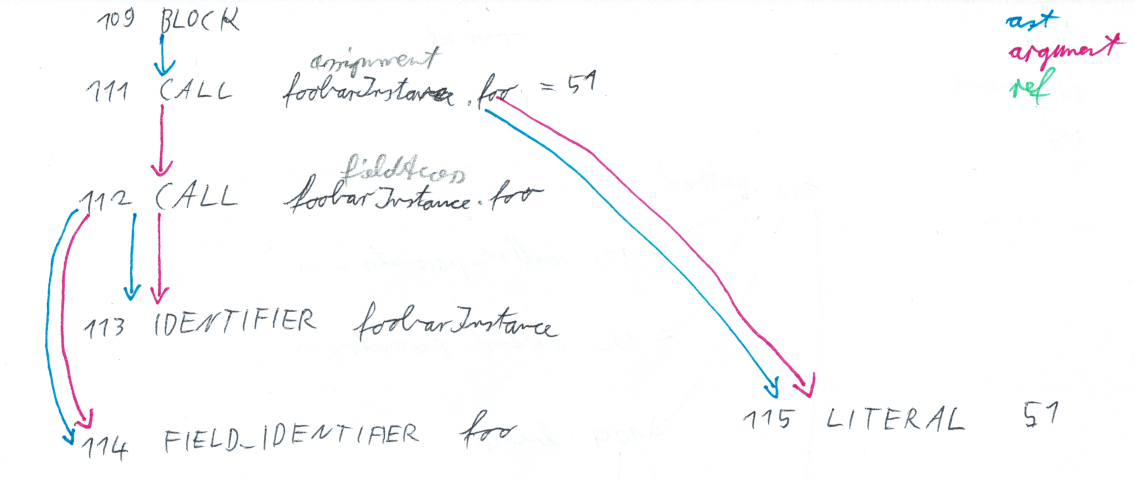 109 BLOCK
ast
argument
ref
assignment
111 CALL foobarInstance.foo = 51
fieldAccess
112 CALL foobarInstance.foo
113 IDENTIFIER foobarInstance
114 FIELD_IDENTIFIER foo
115 LITERAL 51